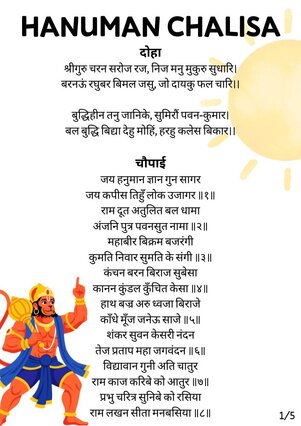 HANUMAN CHALISA
दोहा
श्रीगुरु चरन सरोज रज, निज मनु मुकुरु सुधारि।
बरनऊं रघुबर बिमल जसु, जो दायकु फल चारि।।
बुद्धिहीन तनु जानिके, सुमिरौं पवन-कुमार।
बल बुद्धि बिद्या देहु मोहिं, हरहु कलेस बिकार।।
चौपाई
जय हनुमान ज्ञान गुन सागर
जय कपीस तिहुँ लोक उजागर ॥१॥
राम दूत अतुलित बल धामा
अंजनि पुत्र पवनसुत नामा ॥२॥
महाबीर बिक्रम बजरंगी
कुमति निवार सुमति के संगी ॥३॥
कंचन बरन बिराज सुबेसा
कानन कुंडल कुँचित केसा ॥४॥
हाथ बज्र अरु ध्वजा बिराजे
काँधे मूँज जनेऊ साजे ॥५॥
शंकर सुवन केसरी नंदन
तेज प्रताप महा जगवंदन ॥६॥
विद्यावान गुनी अति चातुर
राम काज करिबे को आतुर ॥७॥
प्रभु चरित्र सुनिबे को रसिया
राम लखन सीता मनबसिया ॥८॥
1/5